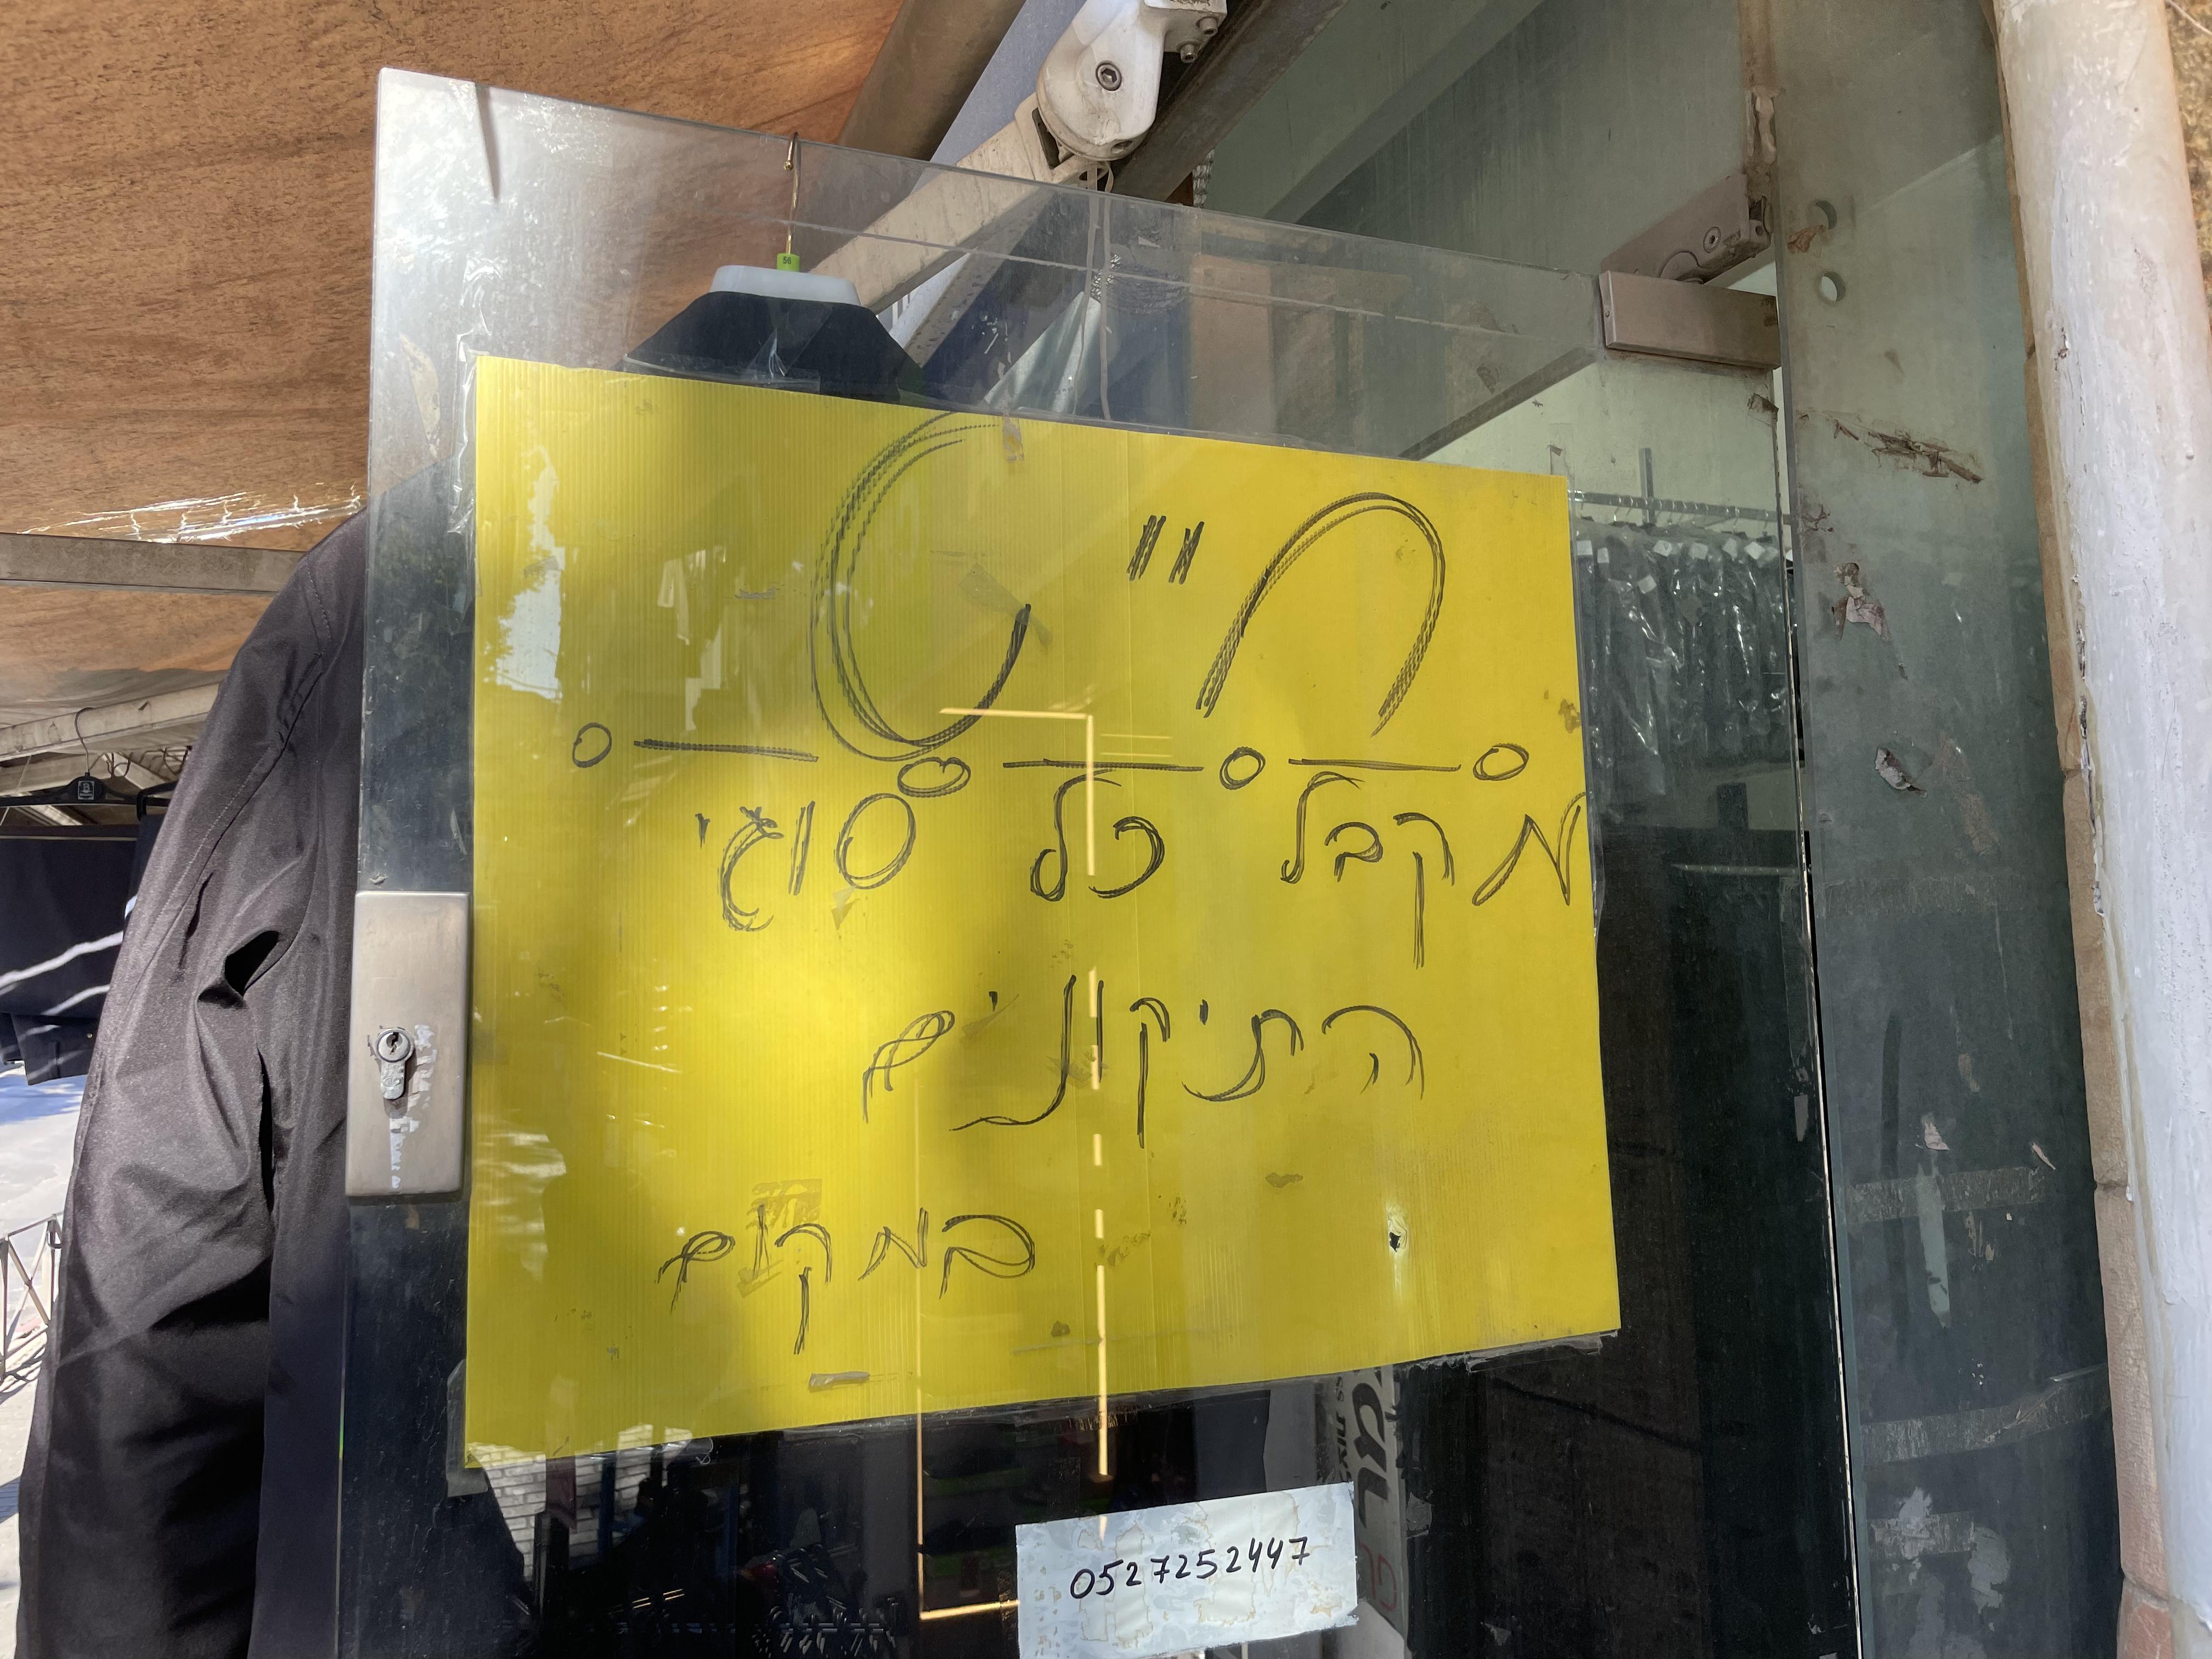 חייט
מקבל כל סוגי
התיקונים
במקום
0527252447